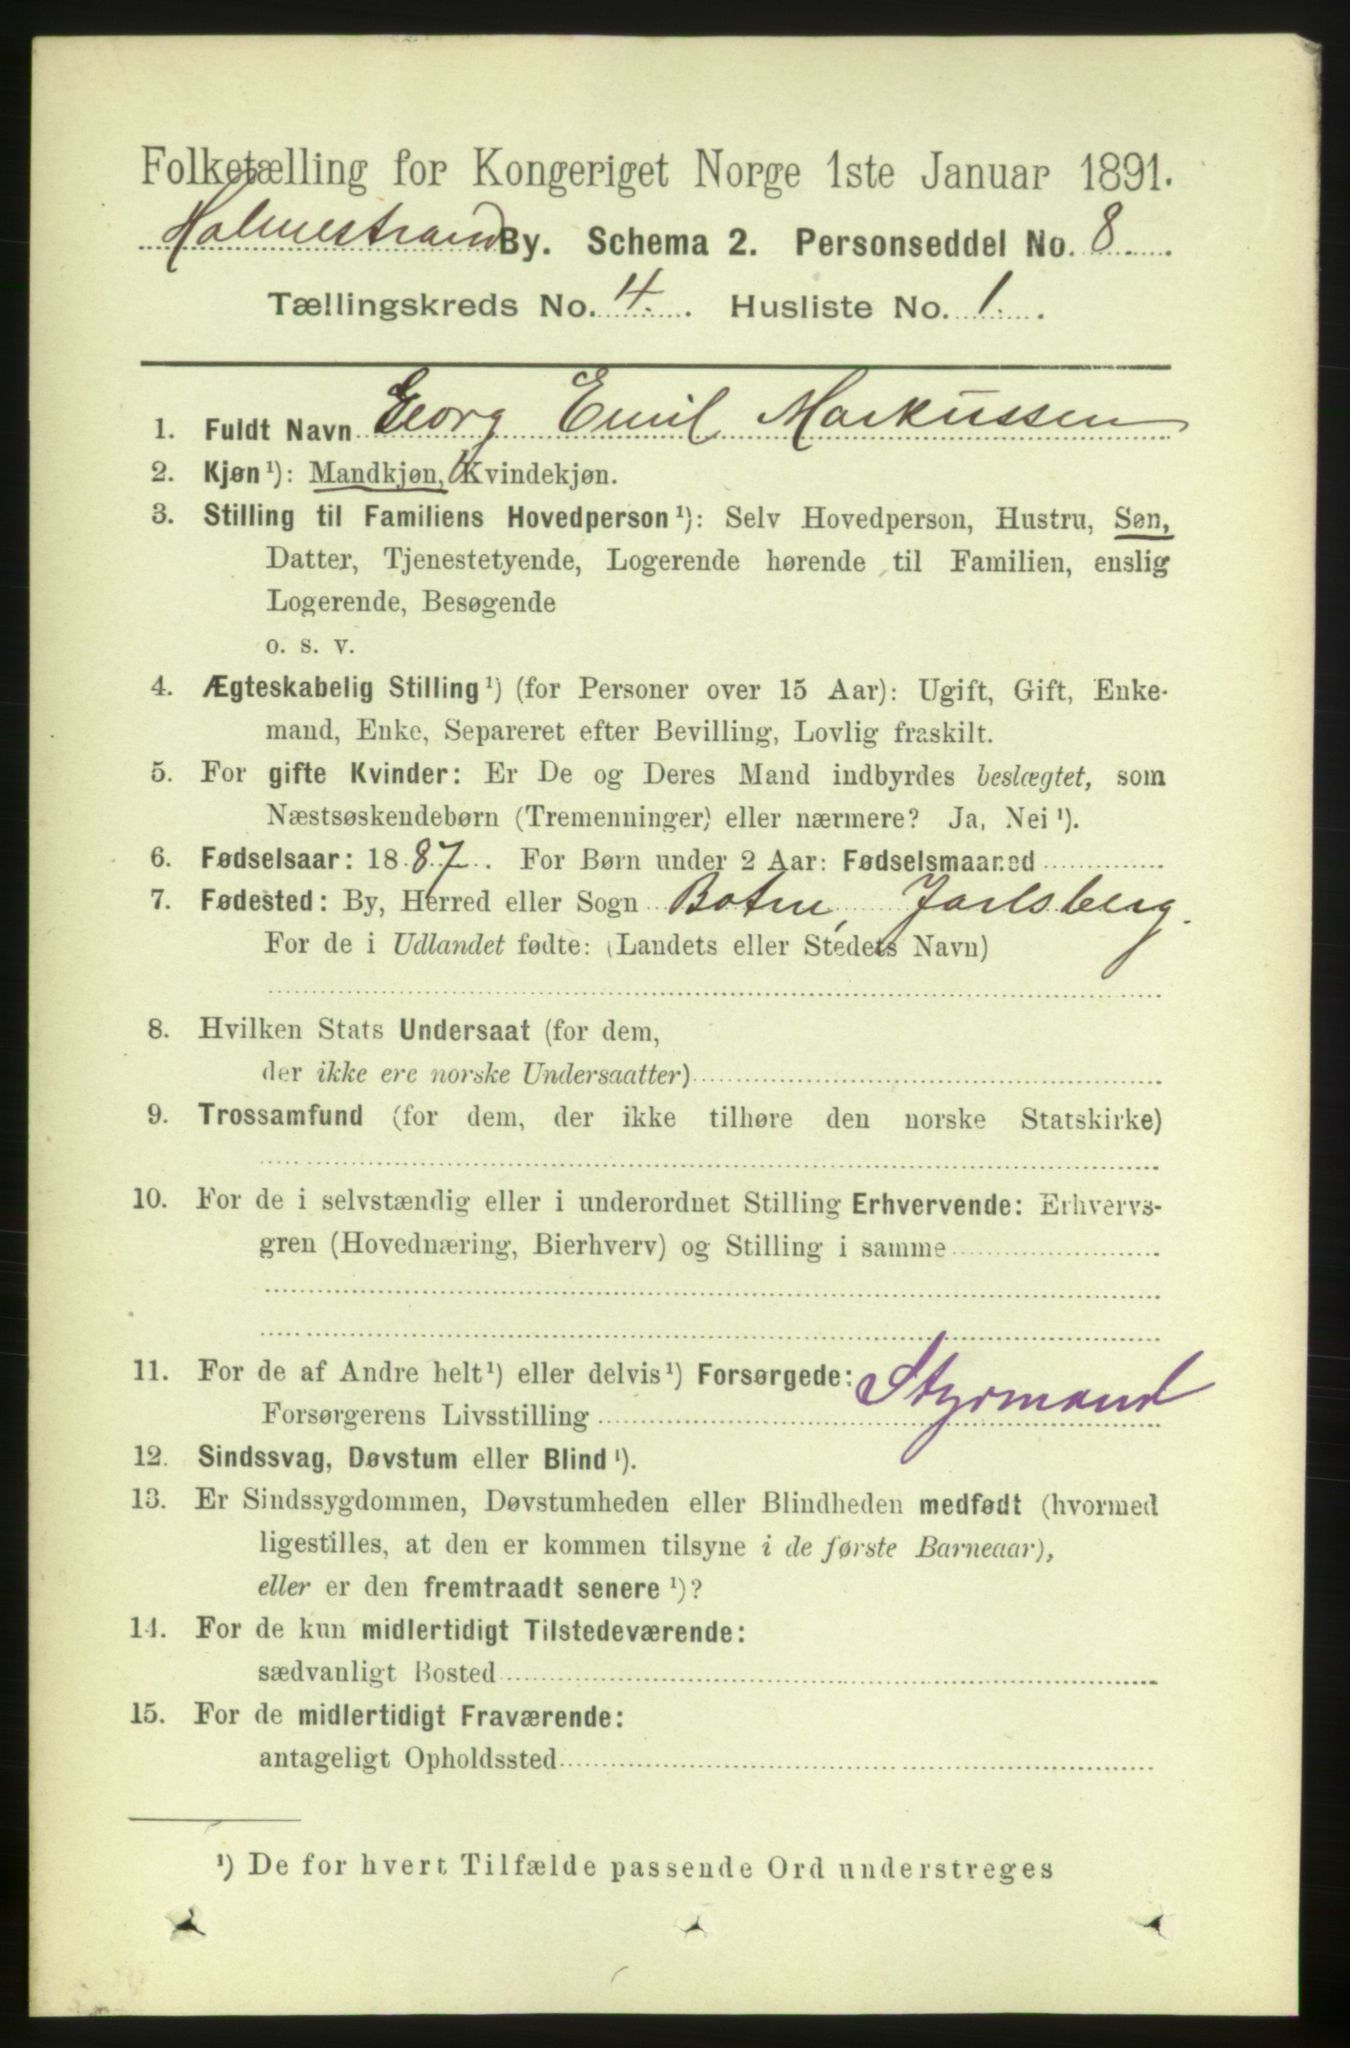 Folketælling for Kongeriget Norge 1ste Januar 1891.
Holmestrand By. Schema 2. Personseddel No. 8
Tællingskreds No. 4. Husliste No. 1.
1. Fuldt Navn Georg Emil Markussen
2. Kjøn¹): Mandkjøn, Kvindekjøn.
3. Stilling til Familiens Hovedperson¹): Selv Hovedperson, Hustru, Søn,
Datter, Tjenestetyende, Logerende hørende til Familien, enslig
Logerende, Besøgende
o. s. v.
4. Ægteskabelig Stilling¹) (for Personer over 15 Aar): Ugift, Gift, Enke-
mand, Enke, Separeret efter Bevilling, Lovlig fraskilt.
5. For gifte Kvinder: Er De og Deres Mand indbyrdes beslægtet, som
Næstsøskendebørn (Tremenninger) eller nærmere? Ja, Nei¹).
6. Fødselsaar: 1887. For Børn under 2 Aar: Fødselsmaaned
7. Fødested: By, Herred eller Sogn Botne, Jarlsberg.
For de i Udlandet fødte: (Landets eller Stedets Navn)
8. Hvilken Stats Undersaat (for dem,
der ikke ere norske Undersaatter)
9. Trossamfund (for dem, der ikke tilhøre den norske Statskirke)
10. For de i selvstændig eller i underordnet Stilling Erhvervende: Erhvervs-
gren (Hovednæring, Bierhverv) og Stilling i samme
11. For de af Andre helt¹) eller delvis¹) Forsørgede:
Forsørgerens Livsstilling Styrmand
12. Sindssvag, Døvstum eller Blind¹).
13. Er Sindssygdommen, Døvstumheden eller Blindheden medfødt (hvormed
ligestilles, at den er kommen tilsyne i de første Barneaar),
eller er den fremtraadt senere¹)?
14. For de kun midlertidigt Tilstedeværende:
sædvanligt Bosted
15. For de midlertidigt Fraværende:
antageligt Opholdssted
¹) De for hvert Tilfælde passende Ord understreges